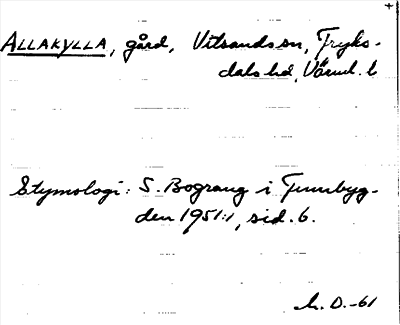 ALLAKYLLA, gård, Vitsands sn, Fryks-
dals hd, Värml. l
Etymologi: S. Bograng i Finnbyg-
den 1951:1, sid. 6.
h. D. -61